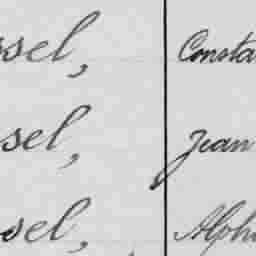 ssel, Consta
sel, Jean
sel, Alpho